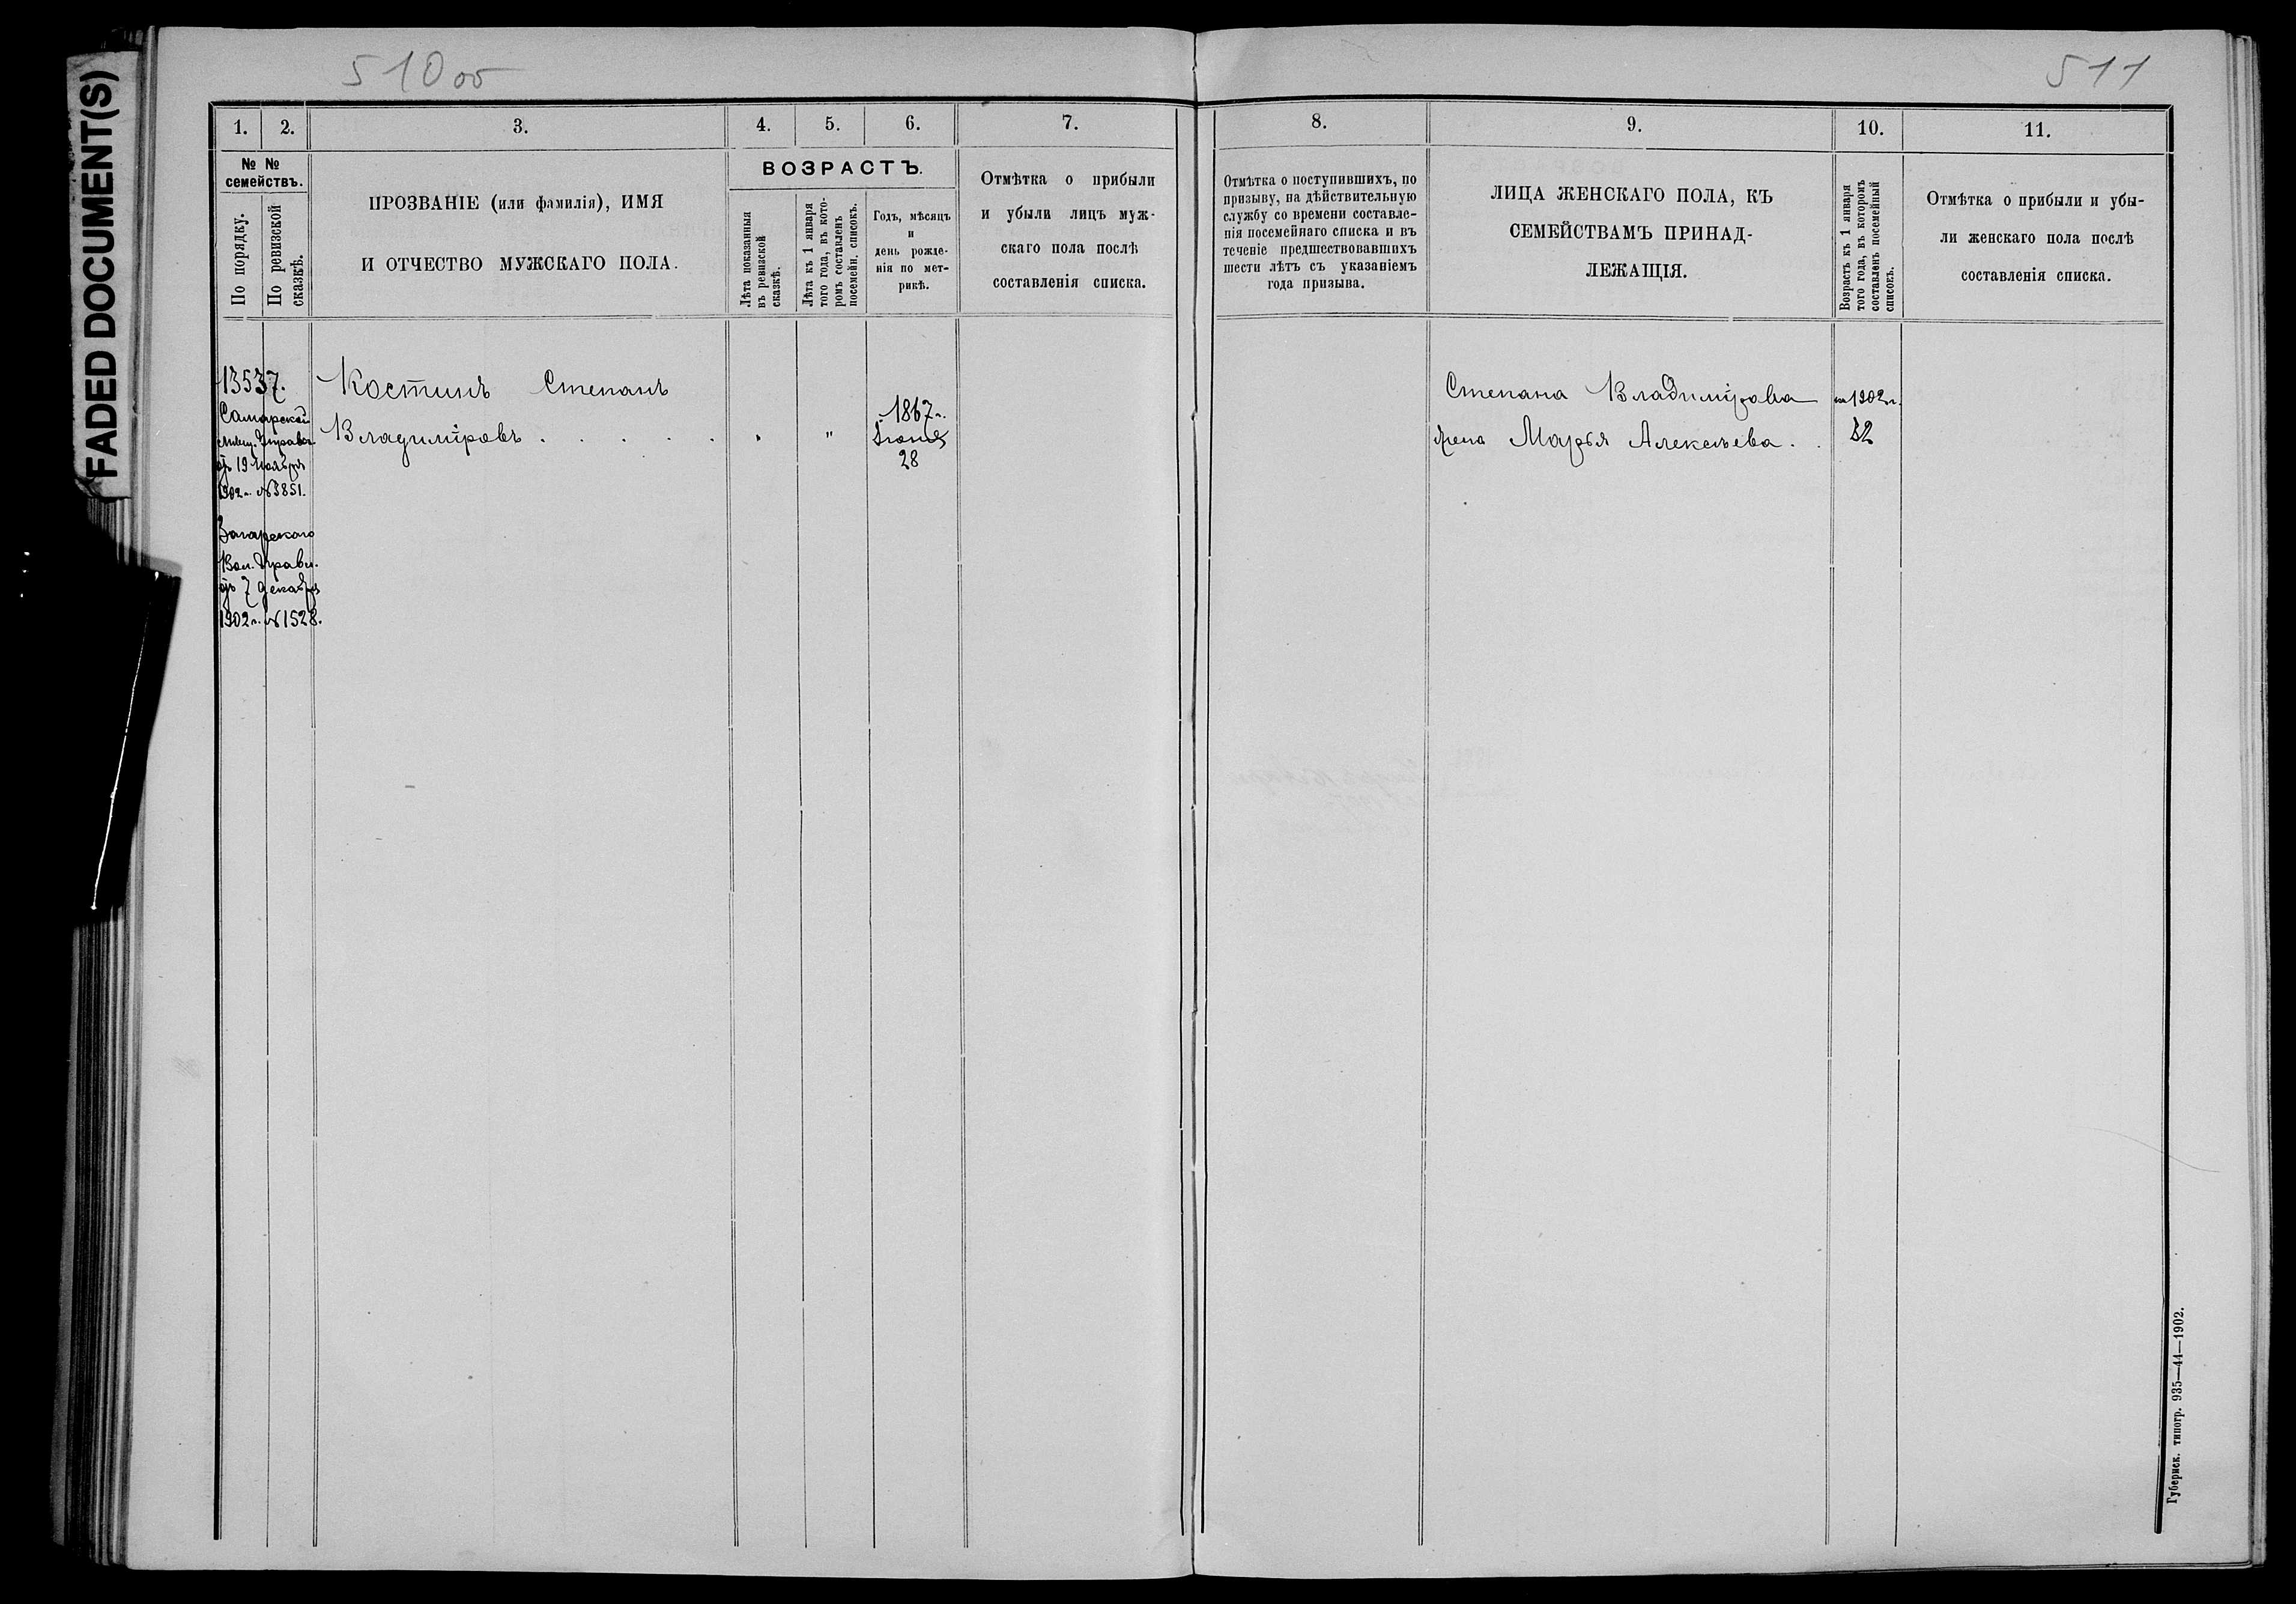 FADED DOCUMENT(S)
510 об
511
1.
2.
3.
4.
5.
6.
7.
8.
9.
10.
11.
№ №
семействъ.
По порядку.
По ревизской
сказкѣ.
ПРОЗВАНІЕ (или фамилія), ИМЯ
И ОТЧЕСТВО МУЖСКАГО ПОЛА.
ВОЗРАСТЪ.
Лѣта показанныя
въ ревизской
сказкѣ.
Лѣта къ 1 января
того года, въ кото-
ромъ составленъ
посемейн. списокъ.
Годъ, мѣсяцъ
и
день рожде-
нія по мет-
рикѣ.
Отмѣтка о прибыли
и убыли лицъ муж-
скаго пола послѣ
составленія списка.
Отмѣтка о поступившихъ, по
призыву, на дѣйствительную
службу со времени составле-
нія посемейнаго списка и въ
теченіе предшествовавшихъ
шести лѣтъ съ указаніемъ
года призыва.
ЛИЦА ЖЕНСКАГО ПОЛА, КЪ
СЕМЕЙСТВАМЪ ПРИНАД-
ЛЕЖАЩІЯ.
Возрастъ къ 1 января
того года, въ которомъ
составленъ посемейный
списокъ.
Отмѣтка о прибыли и убы-
ли женскаго пола послѣ
составленія списка.
13537.
Самарской
управы
19 Ноября
1902 г. № 3851.
Вол. Правл.
7 декабря
1902 г. № 1528.
Костинъ Степанъ
Владиміровъ . . . . . . "
1867 г.
Іюня
28
Степана Владимірова
жена Марья Алексѣева . .
на 1902 г.
32
Губернск. типогр. 935—44—1902.